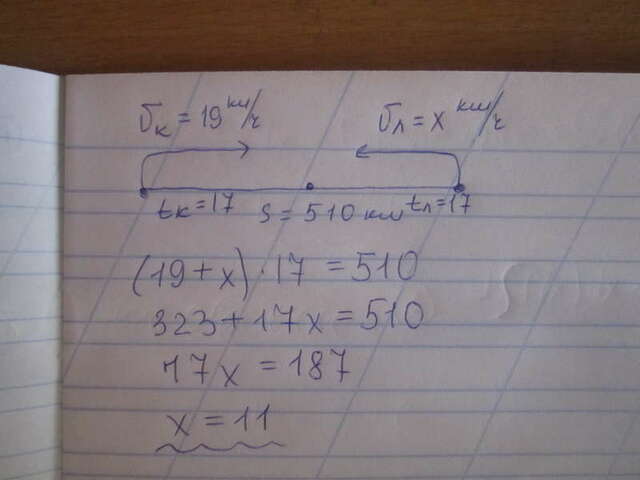 υк = 19 км/ч υл = x км/ч
tк = 17 S = 510 км tл = 17
(19 + x) · 17 = 510
323 + 17x = 510
17x = 187
x = 11